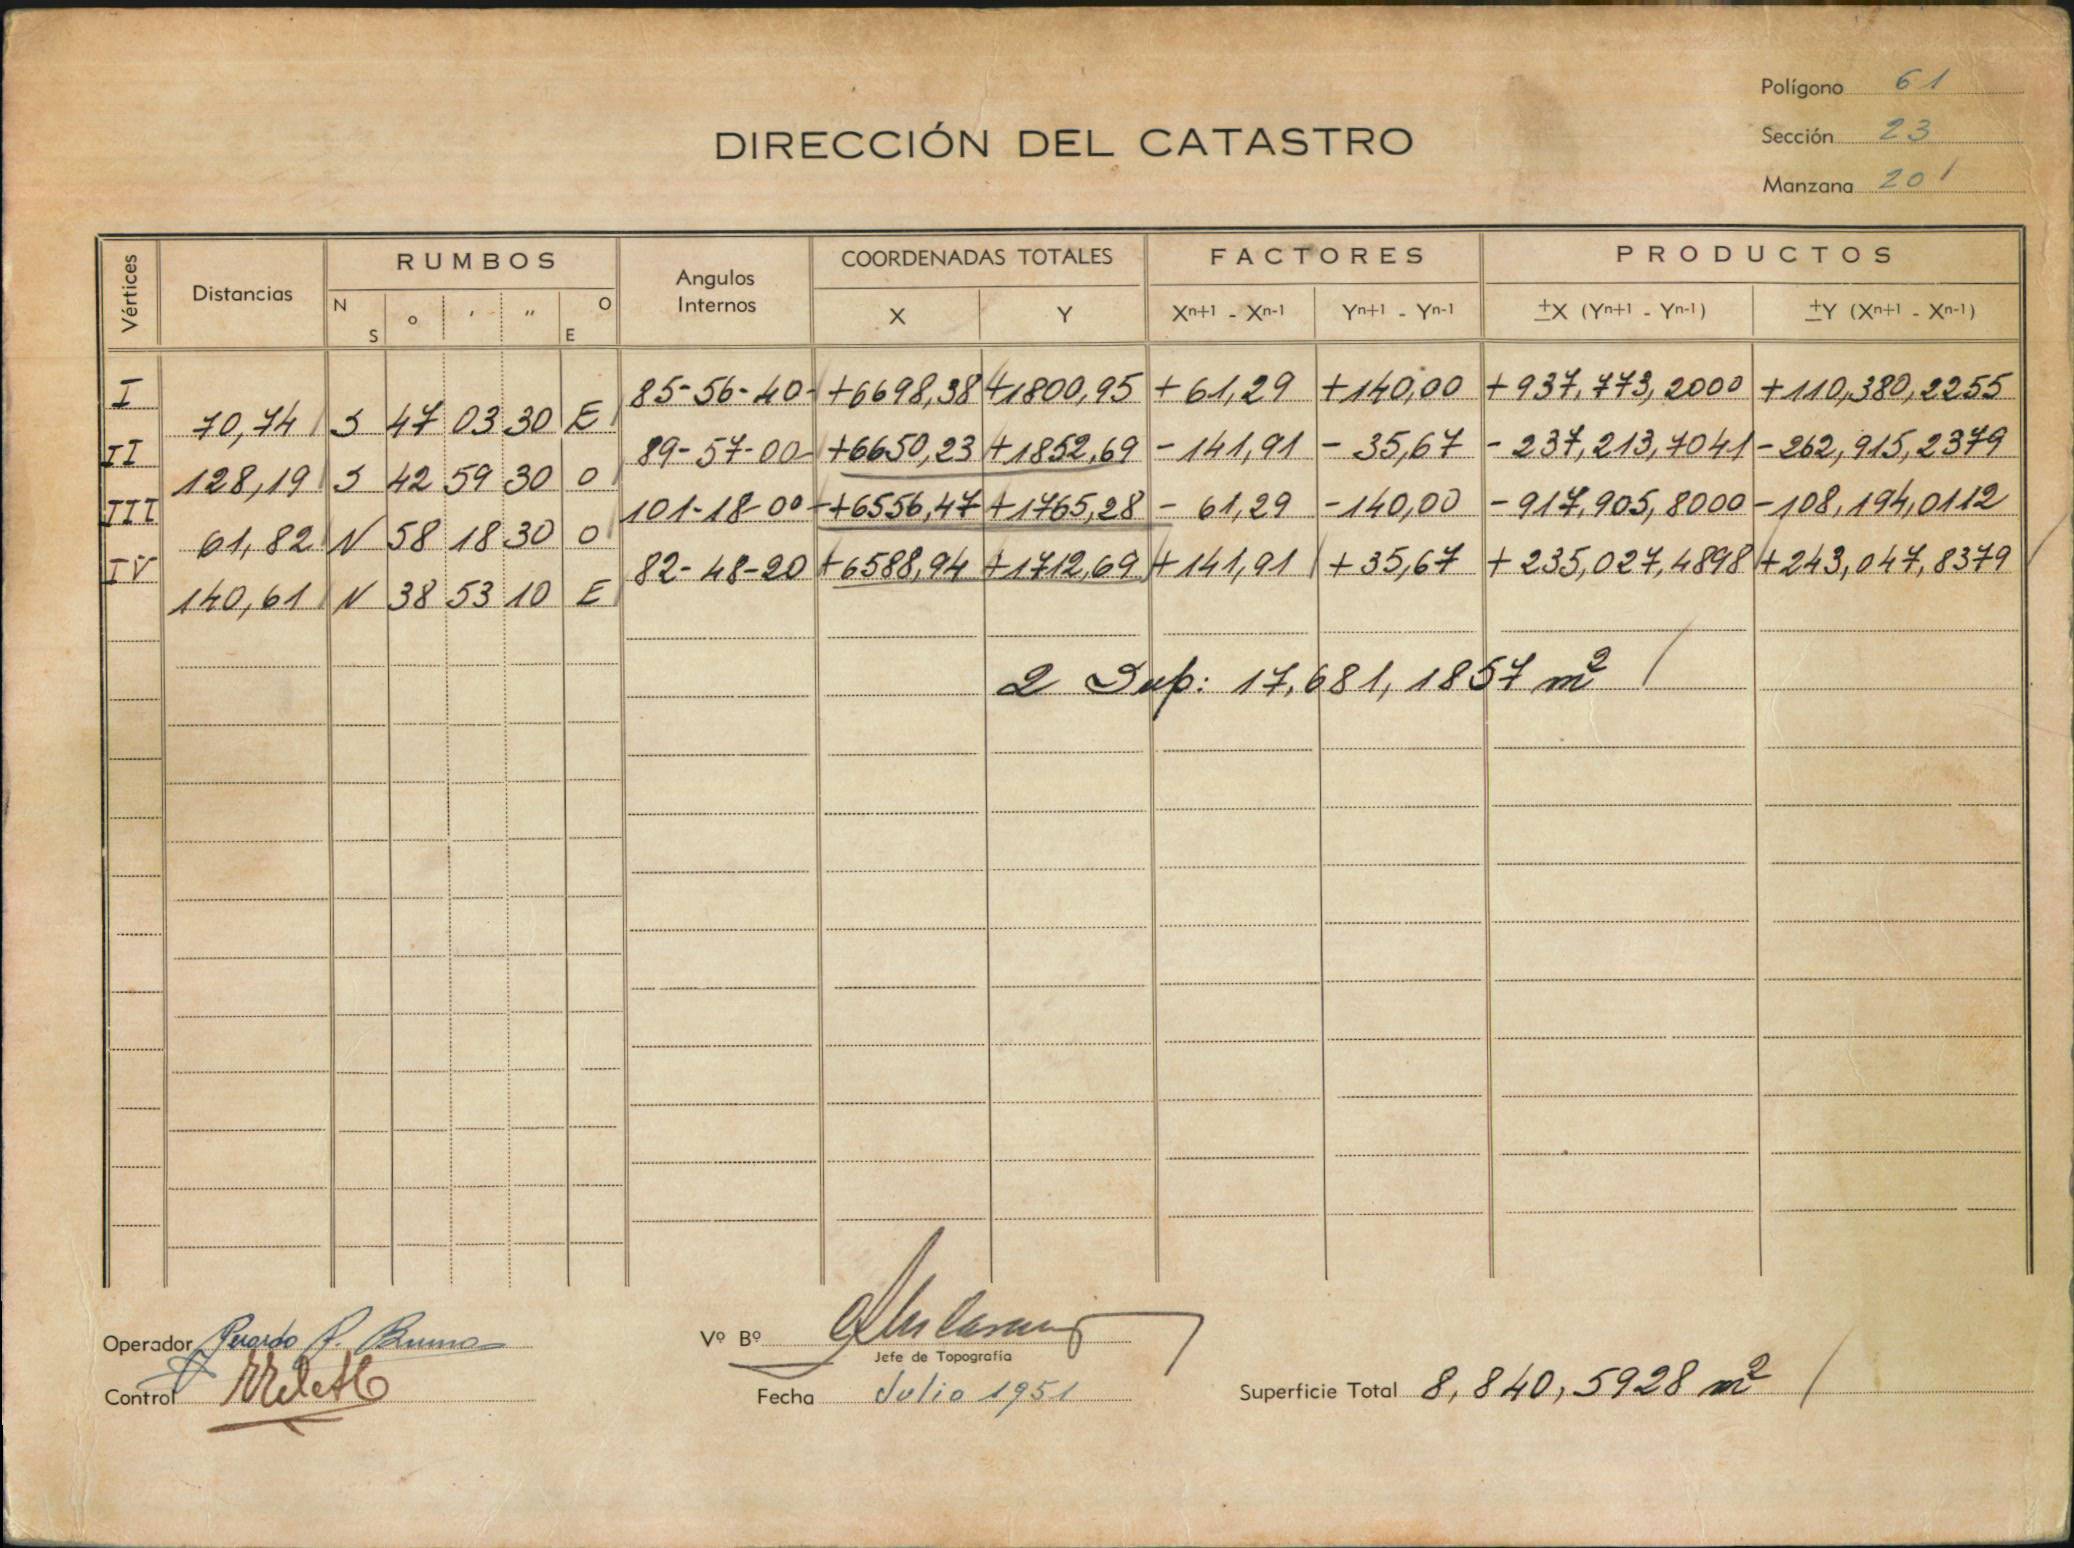 Polígono 61
DIRECCIÓN DEL CATASTRO
Sección 23
Manzana 201
Vértices Distancias RUMBOS N S o ′ ″ O E Angulos Internos COORDENADAS TOTALES X Y FACTORES Xn+1 - Xn-1 Yn+1 - Yn-1 PRODUCTOS ±X (Yn+1 - Yn-1) ±Y (Xn+1 - Xn-1)
I 85-56-40- +6698,38 +1800,95 +61,29 +140,00 +937,773,2000 +110,380,2255
70,74 S 47 03 30 E
II 89-57-00- +6650,23 +1852,69 -141,91 -35,67 -237,213,7041 -262,915,2379
128,19 S 42 59 30 O
III 101-18-00- +6556,47 +1765,28 -61,29 -140,00 -917,905,8000 -108,194,0112
61,82 N 58 18 30 O
IV 82-48-20 +6588,94 +1712,69 +141,91 +35,67 +235,027,4898 +243,047,8379
140,61 N 38 53 10 E
2 Sup: 17,681,1857 m²
Operador
Vº Bº
Jefe de Topografía
Control
Fecha Julio 1951
Superficie Total 8,840,5928 m²